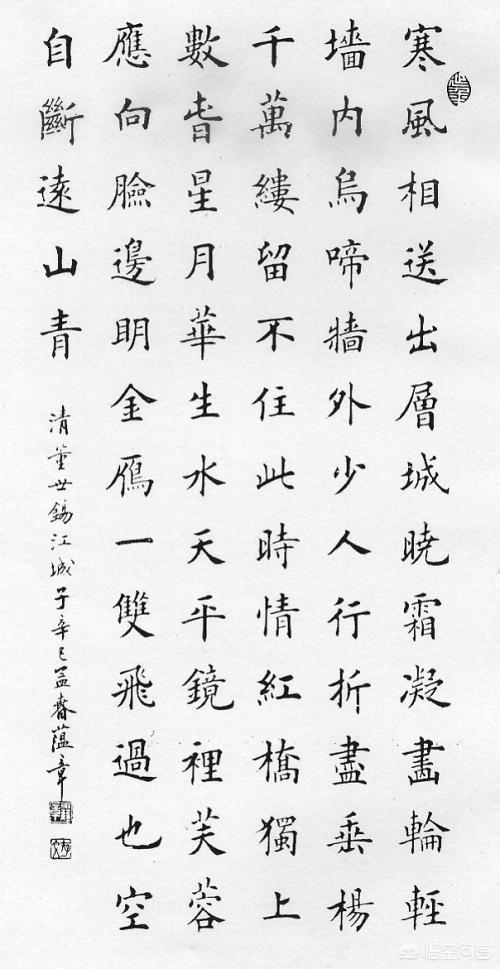 寒風相送出層城暁霜凝畫輪輕
墻内烏啼牆外少人行折盡垂楊
千萬縷留不住此時情紅橋獨上
數春星月華生水天平鏡裡芙蓉
應向臉邊明金鴈一雙飛過也空
自斷遠山青
清董世錫江城子辛巳孟春蘊章
悟空问答